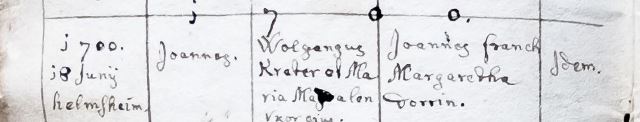 1 7 0 0.
1700.
18 Junij
helmsheim.
Joannes.
Wolgangus
Krater et Ma
ria Magdalen
vxor eius.
Joannes franck
Margaretha
Idem.